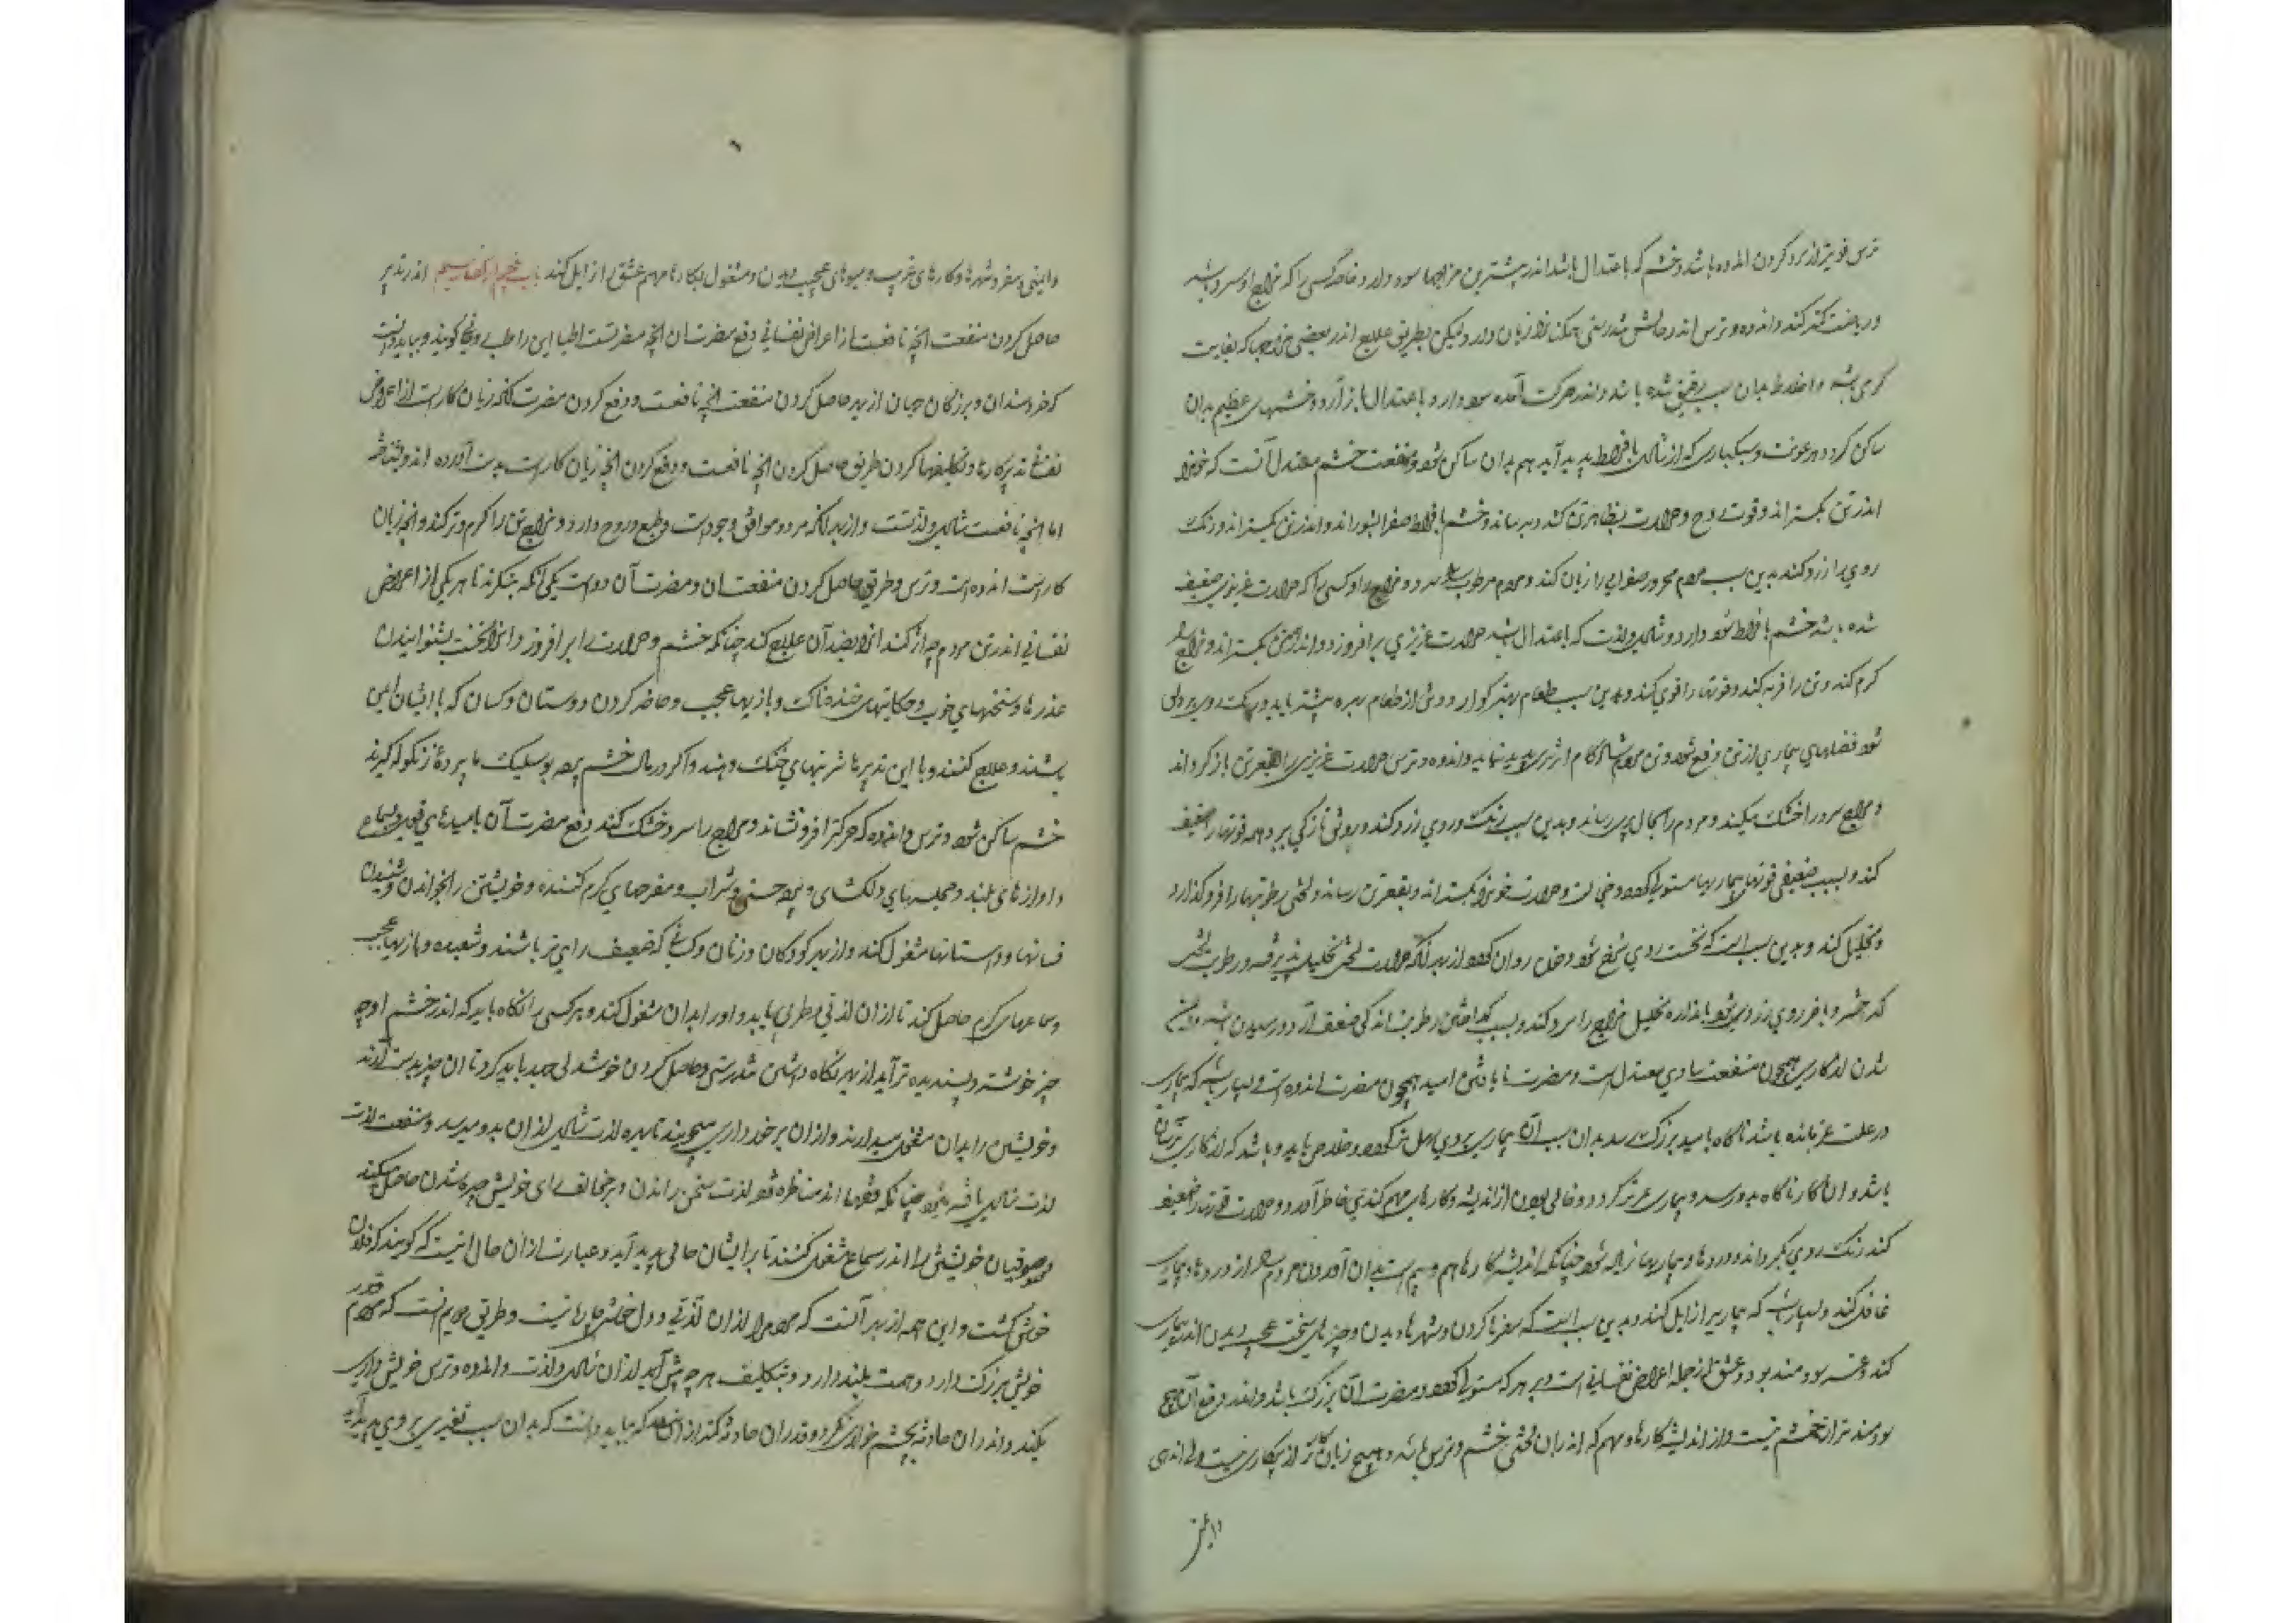 ترس قویتر از سرد کردن اندوه باشد و خشم که باعتدال باشد اندر بیشترین مزاجها سود دارد خاصه کسی را که مزاج او سرد باشد
و ریاضت کمتر کند و اندوه و ترس اندر حالش تندرستی جز زیان دارد ولیکن بطریق علاج اندر بعضی مزاجها که بغایت
گرمی باشد و اخلاط بدان سبب رقیق شده باشد و اندر حرکت آمده سود دارد و باعتدال باز آرد و خشمهای عظیم بدان
ساکن گردد و رعونت و سبکباری که از شادی بافراط پدید آید هم بدان ساکن شود و منفعت خشم معتدل آنست که خون را
اندر تن بگستراند و قوت روح و حرارت بظاهر تن کند و برساند و خشم بافراط صفرا بشوراند و اندر تن بگستراند و رنگ
روی را زرد کند بدین سبب مردم محرور صفرایی را زیان کند و مردم مرطوب را و سرد مزاج را و کسی را که حرارت غریزی ضعیف
شده باشد خشم بافراط سود دارد و شادی و لذت که باعتدال باشد حرارت غریزی برافروزد و اندر همه تن بگستراند و مزاج را
گرم کند و تن را فربه کند و قوتها را قوی کند و بدین سبب طعام بهتر گوارد و تن از طعام بهره بیشتر یابد و رنگ روی
شود فضلهای بیماری از تن دفع شود و تن مردم شادکام اثر پیری دیر پدید نماید و اندوه و ترس حرارت غریزی را بقعر تن باز گرداند
و مزاج سرد و خشک میکند و مردم را بحال پیری رساند و بدین سبب رنگ روی زرد کند و رونق تازگی ببرد و همه قوتها را ضعیف
کند و بسبب ضعیفی قوتها بیماریها مستولی گردد و خجالت و حرارت خون را بگستراند و بقعر تن رساند و لختی رطوبتها را فرو گذارد
و تحلیل کند و بدین سبب است که نخست روی سرخ شود و خوی روان گردد از بهر آنکه حرارت لختی تحلیل پذیرفته و رطوبت لختی
گداخته و باخر روی زرد شود باندازه تحلیل مزاج را سرد کند و بسبب گداختن رطوبت اندکی ضعف آرد و رسیدن
شدن از کاری همچون منفعت شادی معتدل است و مضرت نایافتن امید همچون مضرت اندوه است و بسیار باشد که بیماری
در علت عز مانده باشد ناگاه بامید بزرگ رسد بدان سبب آن بیماری بروی سهل تر گردد و خلاص یابد و باشد که از کاری ترسان
باشد و آن کار ناگاه بدو رسد و بیماری عز‌تر گردد و خالی بودن از اندیشه و کارهای مهم کندی خاطر آرد و حرارت قوتها را ضعیف
کند رنگ روی بگرداند و دردها و بیماریها زیاده شود چنانکه اندیشه کارها مهم و بیم است بدان آوردن مردم را از دردها و بیماری
غافل کند و بسیار باشد که بیماری زایل کند و بدین سبب است که سفرها کردن و شهرها دیدن و چیزهای سخت عجب دیدن اندر بیماری
کند و عشق سودمند بود و عشق از جمله اعراض نفسانی است و بر هر که مستولی گردد مضرت آن بزرگ باشد و اندر دفع آن هیچ
سودمندتر از خشم نیست و از اندیشه کارها و مهم که اندران لختی خشم و ترس باشد و هیچ زیان کارتر از بیکاری نیست
و ایمنی و سفر و شهرها و کارهای غریب و میوهای عجیب دیدن و مشغول بکارها مهم عشق را زایل کند باب پنجم از گفتار سیم اندر تدبیر
حاصل کردن منفعت آنچه نافعست از اعراض نفسانی و دفع مضرت آن آنچه مضر تست اطبا این را طب روحانی گویند و بباید دانست
که خردمندان و بزرگان جهان از بهر حاصل کردن منفعت آنچه نافعست و دفع کردن مضرت آنکه زیان کار است از اعراض
نفسانی تدبیر کارها و تکلیفها کردن طریق حاصل کردن آنچه نافعست و دفع کردن آنچه زیان کار است بدست آورده اند و شناخته
اما آنچه نافعست شادی و لذتست و از بهر آنکه هر دو موافق وجود است و طبع و روح دارد و مزاج تن را گرم و تر کند و آنچه زیان
کار است اندوه است و ترس و طریق حاصل کردن منفعت آن و مضرت آن دو است یکی آنکه بنگرند تا هر یکی از اعراض
نفسانی اندر تن مردم چه اثر کند آنرا بضد آن علاج کند چنانکه خشم و حرارت را برافروزد آنرا نخست بشنوانیدن
عذرها و سخنهای خوب و حکایتهای خنده ناک و بازیها عجب و حاضر کردن دوستان و کسان که با ایشان ایمن
باشند و علاج کنند و با این تدبیرها شربتهای خنک دهند و اگر در حال خشم پرده بوسلیک یا پردهٔ زنگوله گیرند
خشم ساکن شود و ترس و اندوه که حرکت را فرو نشاند و مزاج را سرد و خشک کند دفع مضرت آن بامیدهای قوی و سماع
و اوازهای بلند و مجلسهای دلگشای و شراب و مفرحهای گرم کننده و خویشتن را بخواندن و شنیدن
فسانها و داستانها مشغول کند و از بهر کودکان و زنان و کسانی که ضعیف رای تر باشند و شعبده و بازیها عجب
و سماعهای گرم حاصل کند تا از آن لذتی و طربی یابد و او را بدان مشغول کند و هر کسی را نگاه باید که اندر خشم او چه
چیز خوشتر و پسندیده تر آید از بهر نگاه داشتن تندرستی و حاصل کردن خوشدلی جهد باید کرد تا آن چیز بدست آرند
و خویشتن را بدان مشغول میدارند و از آن برخورداری میجویند تا بهره لذت شادی از آن بدو میرسد و منفعت لذت
لذت شادی یافته میشود چنانکه فقها اندر مناظره فقه لذت سخن راندن و بر مخالف رای خویش چیره شدن حاصل میکند
و صوفیان خویشتن را اندر سماع مشغول کنند تا بر ایشان حالی پدید آید و عبارت از آن حال اینست که گویند که فلان
خوش گشت و این همه از بهر آنست که مردم را از آن لذتی و دل خوشی است و طریق دویم آنست که مردم قدر
خویش بزرگ دارد و همت بلند دارد و بتکلیف هر چه پیش آید از آن شادی و لذت و اندوه و ترس خویش داری
بکند و اندر آن حادثه بچشم خواری نگرد و قدر آن حادثه کند از آنچه که بباید دانست که بدان سبب تغیری بروی پدید آید